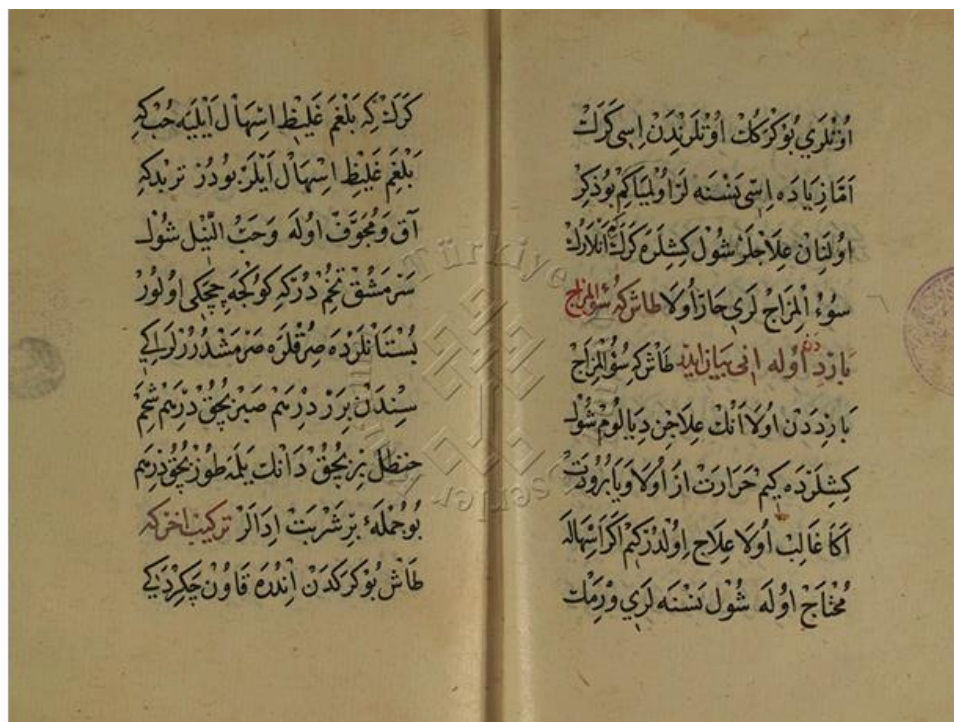 اُوتْلَرِي بُوكْرَكُكْ اُوتْلَرِنْدَنْ اِسِّى كَرَكْ
اَمَّا زِيَادَه اِسِّى نَسْنَه لَرْ اُولْمِيَا كِمْ بُو ذِكِرْ
اُولُنَانْ عِلَاجْلَرْ شُولْ كِشِلَرَه كَرَكْ اَنْلَارُكْ
سُوءُ الْمِزَاجْ لَرِي حَارْ اُولَا طَاشْ كِه سُوءُ الْمِزَاجْ
بَارِدْدَنْ اُولَه اَنِى بَيَانْ اِيدَرْ طَاشْ كِه سُوءُ الْمِزَاجْ
بَارِدْدَنْ اُولَا اَنُكْ عِلَاجِنْ دِيَالُومْ شُولْ
كِشِلَرْدَه كِيمْ حَرَارَتْ اَزْ اُولَا وَيَا بُرُودَتْ
اَكَا غَالِبْ اُولَا عِلَاجْ اِوُلْدُرْ كِيمْ اَكَرْ اِسْهَالَه
مُحْتَاجْ اُولَه شُولْ نَسْنَه لَرِي وِرْمَكْ
كَرَكْ كِه بَلْغَمِ غَلِيظِ اِسْهَالْ اَيْلَيَه حُبْ كِه
بَلْغَمِ غَلِيظِ اِسْهَالْ اَيْلَرْ بُودُرْ تُرْبِدْ كِه
آقْ وَمُجَوَّفْ اُولَه وَحَبُّ النِّيلْ شُولْ
سَرْمَشُقْ تُخْمِدُرْ كِه كُوكْجَه چِچَكِى اُولُورْ
بُسْتَانْلَرْدَه صِرِقْلَرَه صَرْمَشُدُرُرْلَرْ اِيكِى
سِنْدَنْ بِرَرْ دِرْهَمْ صَبِرْ بُچُقْ دِرْهَمْ شَحْمِ
حَنْظَلْ بِرْ بُچُقْ دَانَكْ بَلَه طُوزْ بُچُقْ دِرْهَمْ
بُو جُمْلَه بِرْ شَرْبَتْ اِدَالَرْ تَرْكِيبِ اٰخَرْ كِه
طَاشْ بُوكْرَكْدَنْ اِنْدُرَه قَاوُنْ چَكِرْدَكِى
Türkiye